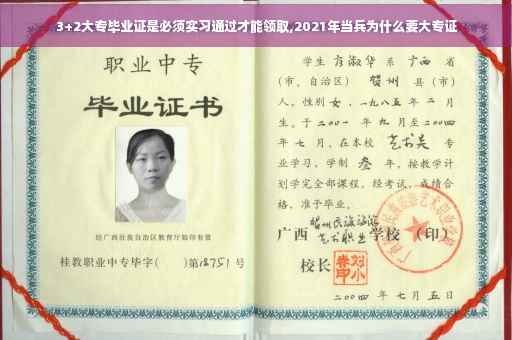 3+2大专毕业证是必须实习通过才能领取,2021年当兵为什么要大专证
职业中专
毕业证书
经广西壮族自治区教育厅验印有效
桂教职业中专毕字( )第18751号
学生 方淑华 系 广西 省
(市、自治区) 贺州 县(市)
人,性别 女,一九八五年 二 月
生,于二〇〇一 年 九 月至二〇〇四
年 七 月,在本校 艺术类 专
业学习,学制 叁 年,按教学计
划学完全部课程,经考试,成绩合
格,准予毕业。
贺州民族旅游
广西 艺术职业 学校 (印)
校长
二〇〇四 年 七 月 五 日